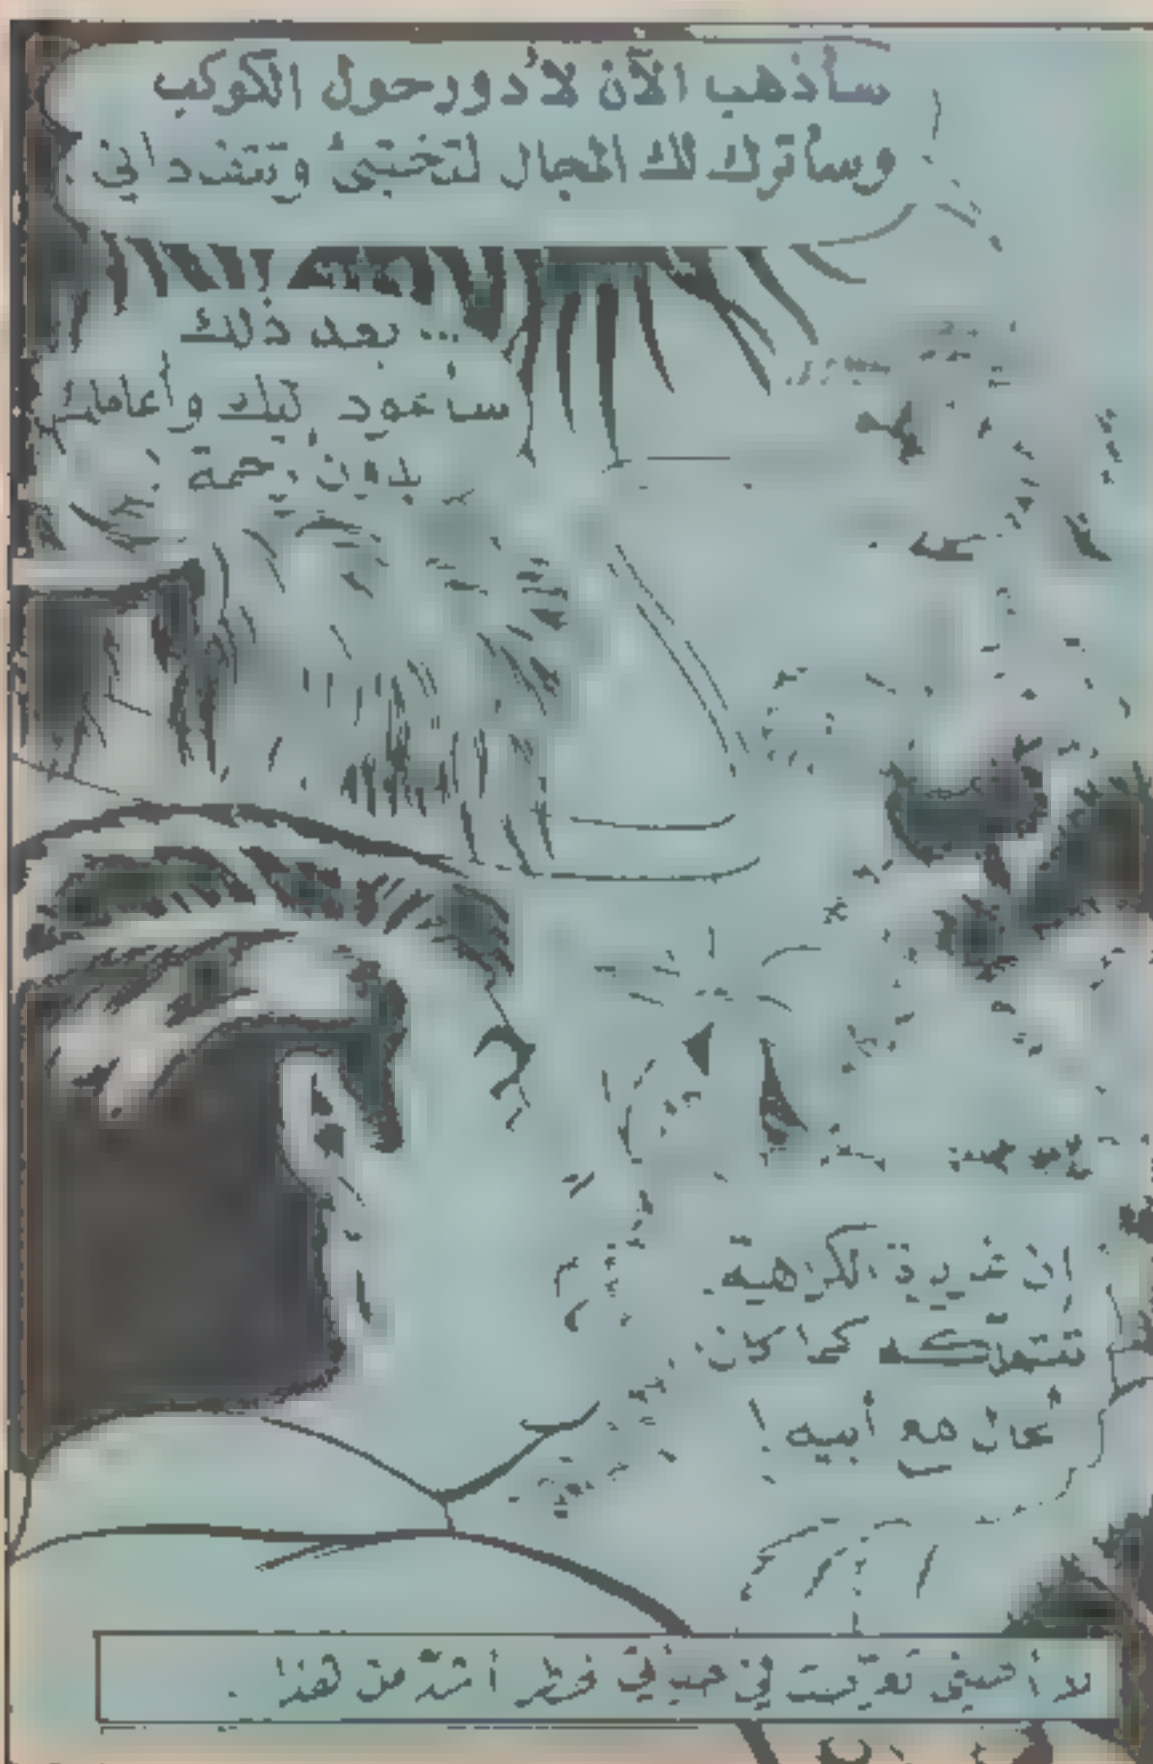 سأذهب الآن لأدور حول الكوكب
وسأترك لك المجال لتختبئ وتتفاداني .
... بعد ذلك
سأعود إليك وأعاملك
بدون رحمة !
إن غريزة الكراهية
تتملكه كما كان
الحال مع أبيه !
لا أصدق تعرضت في حياتي لخطر أشد من هذا .